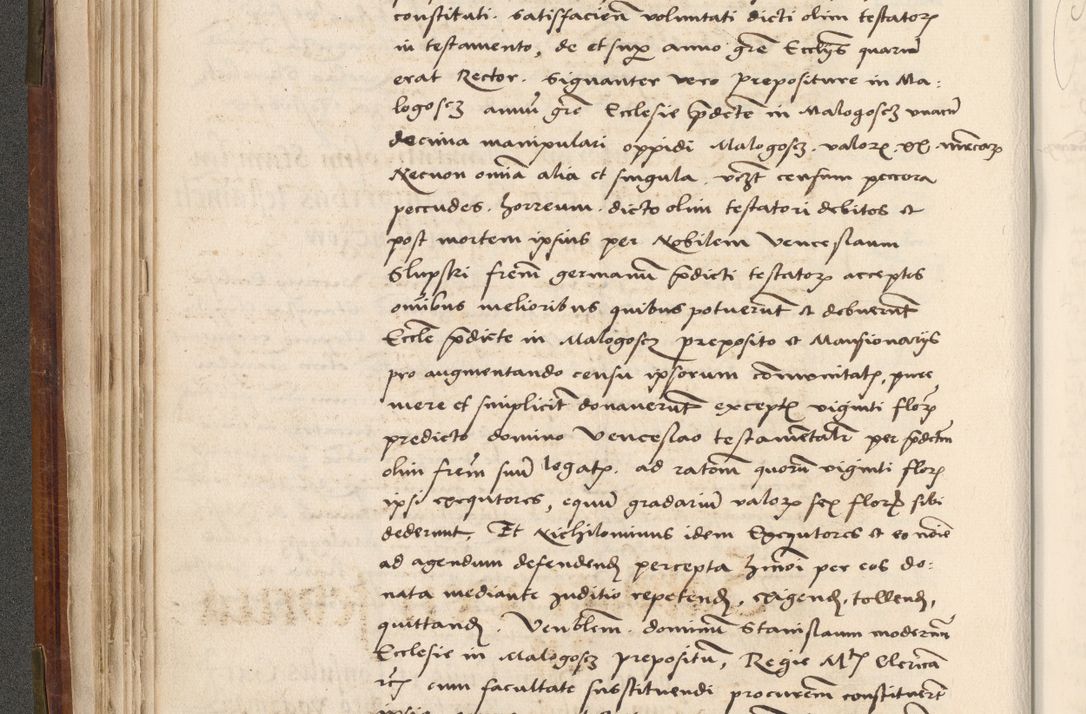 constituti. Satisfacien voluntati dicti olim testatorꝭ
in testamento, de et sup anno gr̃e Eccl̃ijs quarũ
erat Rector. Signanter vero prepositure in Ma:
logoscz annũ gr̃e Ecclesie p̃dicte in Malogoscz unacũ
decima manipulari oppidi Malogoscz. valorꝭ XX mrcarꝭ
Necnon om̃ia alia et singula. vcz̃t censum peccora
peccudes. horreum. dicto olim testatori debitos et
post mortem ipsius per Nobilem Venceslaum
Slupski frem̃ germanũ p̃dicti testatorꝭ acceptis
om̃ibus melioribus quibus potuerũt et debuerũt
Eccl̃e p̃dicte in Malogoscz preposito et Mansionarijs
pro augmentando censu ipsorum com̃unitatꝭ, pure
mere et simplicit̃ donaverũt exceptꝭ viginti florꝭ
predicto domino Venceslao testamẽtalr̃ per p̃dictũ
olim frem̃ suũ legatꝭ. ad ratom̃ quorũ viginti florꝭ
ipsi exequtores, equũ gradariũ valorꝭ sex florꝭ sibi
dederunt, Et Nichilominus idem Exequtores et eo noĩe
ad agendum defendendꝭ percepta hm̃oi per eos do:
nata mediante Juditio repetendꝭ, exigendꝭ, tollendꝭ,
quittandꝭ. Venẽblem. dominũ Stanislaum modernũ
Ecclesie in Malogoscz prepositũ, Regie Mtꝭ Clericũ
cum facultate substituendi procurem̃ constituerũt